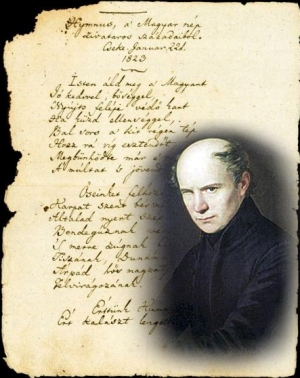 Hymnus, a Magyar nép
zivataros századaiból.
Cseke Januar. 22d.
1823
Isten áld meg a Magyart
Jó kedvvel, bőséggel,
Nyújts feléje védő kart
Ha küzd ellenséggel;
Bal sors a kit régen tép
Hozz rá víg esztendőt
Megbűnhődte már e
A múltat s jövend
Őseinket felhoz
Kárpát szent bér
Általad nyert szép
Bendegúznak
'S merre zúgnak
Tiszának, Duná
Árpád hős magza
Felvirágozának!
Értünk Kuns
Ért kalászt lenget